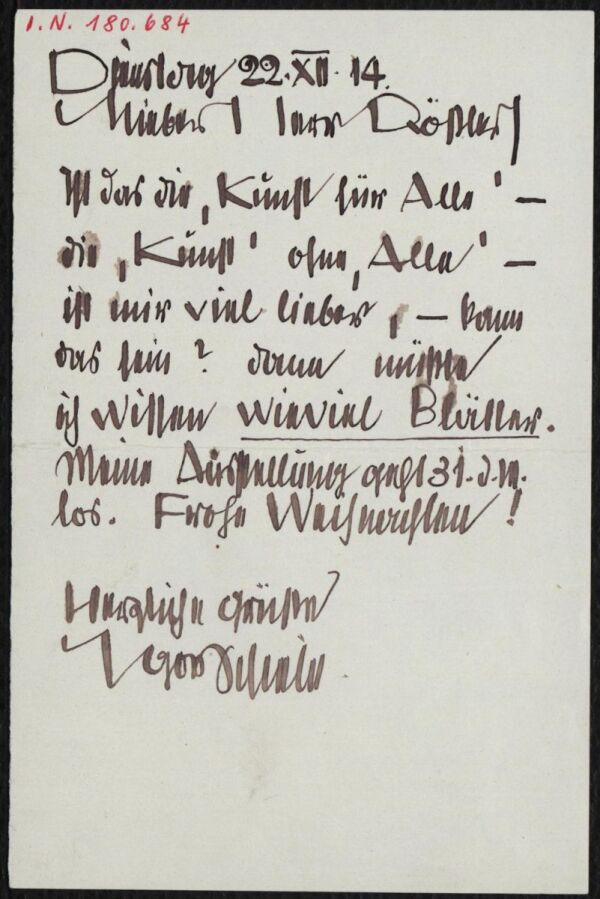 I.N. 180.684
Dienstag 22. XII. 14.
Lieber Herr Rößler!
Ist das die „Kunst für Alle' —
die „Kunst' ohne „Alle' —
ist mir viel lieber, — kann
das sein? dann müßte
ich wissen wieviel Blätter.
Meine Ausstellung geht 31. d. M.
los. Frohe Weihnachten!
Herzliche Grüße
Egon Schiele